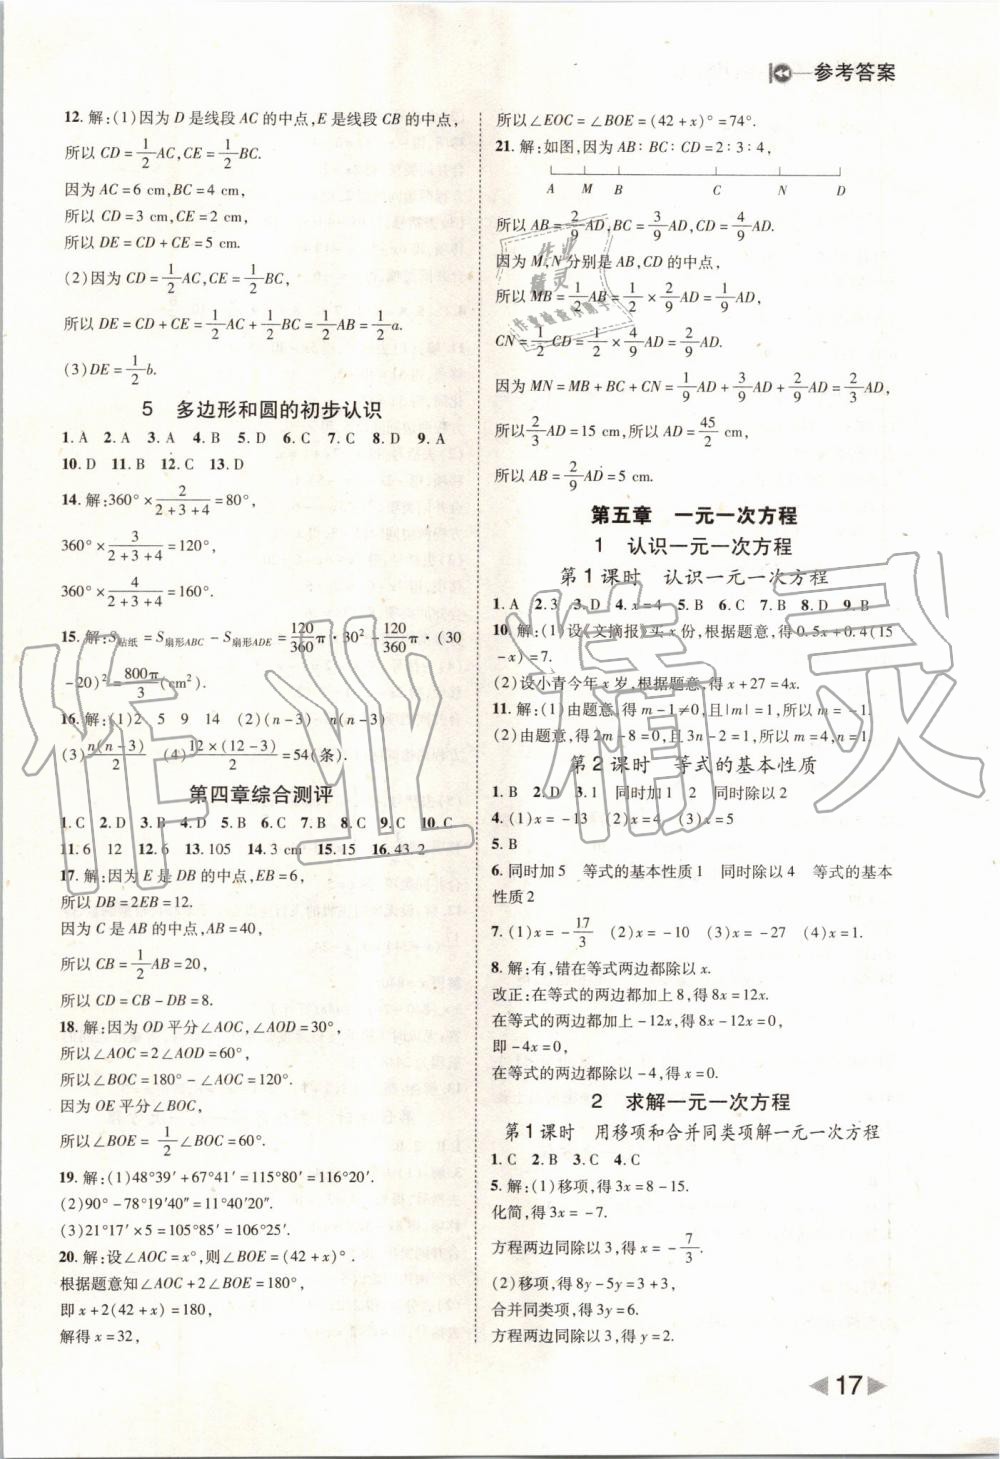 参考答案
12. 解:(1)因为 D 是线段 AC 的中点,E 是线段 CB 的中点,
所以 CD=1/2AC,CE=1/2BC.
因为 AC=6 cm,BC=4 cm,
所以 CD=3 cm,CE=2 cm,
所以 DE=CD+CE=5 cm.
(2)因为 CD=1/2AC,CE=1/2BC,
所以 DE=CD+CE=1/2AC+1/2BC=1/2AB=1/2a.
(3)DE=1/2b.
5 多边形和圆的初步认识
1. A 2. A 3. A 4. B 5. D 6. C 7. C 8. D 9. A
10. D 11. B 12. C 13. D
14. 解:360°×2/(2+3+4)=80°,
360°×3/(2+3+4)=120°,
360°×4/(2+3+4)=160°.
15. 解:S贴纸=S扇形ABC-S扇形ADE=120/360π·30²-120/360π·(30
-20)²=800π/3(cm²).
16. 解:(1)2 5 9 14 (2)(n-3) n(n-3)
(3)n(n-3)/2 (4)12×(12-3)/2=54(条).
第四章综合测评
1. C 2. D 3. B 4. D 5. B 6. C 7. B 8. C 9. C 10. C
11. 6 12 12. 6 13. 105 14. 3 cm 15. 15 16. 43.2
17. 解:因为 E 是 DB 的中点,EB=6,
所以 DB=2EB=12.
因为 C 是 AB 的中点,AB=40,
所以 CB=1/2AB=20,
所以 CD=CB-DB=8.
18. 解:因为 OD 平分∠AOC,∠AOD=30°,
所以∠AOC=2∠AOD=60°,
所以∠BOC=180°-∠AOC=120°.
因为 OE 平分∠BOC,
所以∠BOE=1/2∠BOC=60°.
19. 解:(1)48°39′+67°41′=115°80′=116°20′.
(2)90°-78°19′40″=11°40′20″.
(3)21°17′×5=105°85′=106°25′.
20. 解:设∠AOC=x°,则∠BOE=(42+x)°.
根据题意知∠AOC+2∠BOE=180°,
即 x+2(42+x)=180,
解得 x=32,
所以∠EOC=∠BOE=(42+x)°=74°.
21. 解:如图,因为 AB∶BC∶CD=2∶3∶4,
A M B C N D
所以 AB=2/9AD,BC=3/9AD,CD=4/9AD.
因为 M,N 分别是 AB,CD 的中点,
所以 MB=1/2AB=1/2×2/9AD=1/9AD,
CN=1/2CD=1/2×4/9AD=2/9AD.
因为 MN=MB+BC+CN=1/9AD+3/9AD+2/9AD=2/3AD,
所以2/3AD=15 cm,所以 AD=45/2 cm,
所以 AB=2/9AD=5 cm.
第五章 一元一次方程
1 认识一元一次方程
第1课时 认识一元一次方程
1. A 2. 3 3. D 4. x=4 5. B 6. B 7. B 8. D 9. B
10. 解:(1)设《文摘报》买 x 份,根据题意,得 0.5x+0.4(15
-x)=7.
(2)设小青今年 x 岁,根据题意,得 x+27=4x.
11. 解:(1)由题意,得 m-1≠0,且|m|=1,所以 m=-1.
(2)由题意,得 2m-8=0,且 3n-2=1,所以 m=4,n=1.
第2课时 等式的基本性质
1. B 2. D 3. 1 同时加1 2 同时除以2
4. (1)x=-13 (2)x=4 (3)x=5
5. B
6. 同时加5 等式的基本性质1 同时除以4 等式的基本
性质2
7. (1)x=-17/3 (2)x=-10 (3)x=-27 (4)x=1.
8. 解:有,错在等式两边都除以 x.
改正:在等式的两边都加上8,得 8x=12x,
在等式的两边都加上-12x,得 8x-12x=0,
即-4x=0,
在等式的两边都除以-4,得 x=0.
2 求解一元一次方程
第1课时 用移项和合并同类项解一元一次方程
1. C 2. B 3. C 4. C
5. 解:(1)移项,得 3x=8-15.
化简,得 3x=-7.
方程两边同除以3,得 x=-7/3.
(2)移项,得 8y-5y=3+3,
合并同类项,得 3y=6.
方程两边同除以3,得 y=2.
17
作业精灵
作业
精灵
作业检查小助手